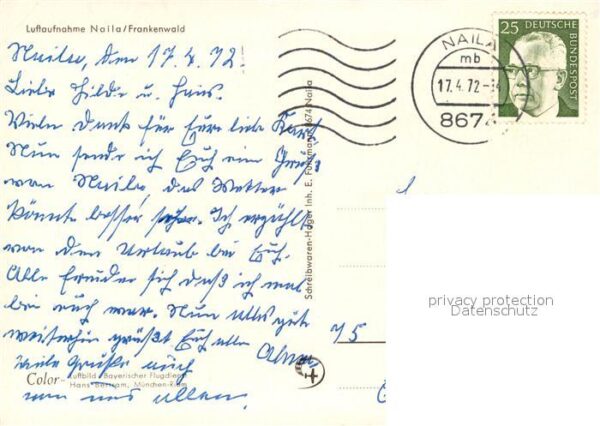 Luftaufnahme Naila/Frankenwald
Naila, den 17.4.72.
Liebe Hilde u. Hans.
Viele Dank für Eure liebe Karte
Nun sende ich Euch ein Gruß
von Naila das Wetter
könnte besser sein. Ich erzählt
von den Urlaub bei Euch.
Alle freuden sich daß ich mal
bei euch war. Nun alles gute
weiterhin grüßt Euch alle
viele Grüße auch
von uns allen.
Color-Luftbild Bayerischer Flugdienst
Hans Bertram, München-Riem
Schreibwaren-Hager Inh. E. 8674 Naila
NAILA
mb
17.4.72-
8674
25 DEUTSCHE BUNDESPOST
75
privacy protection
Datenschutz